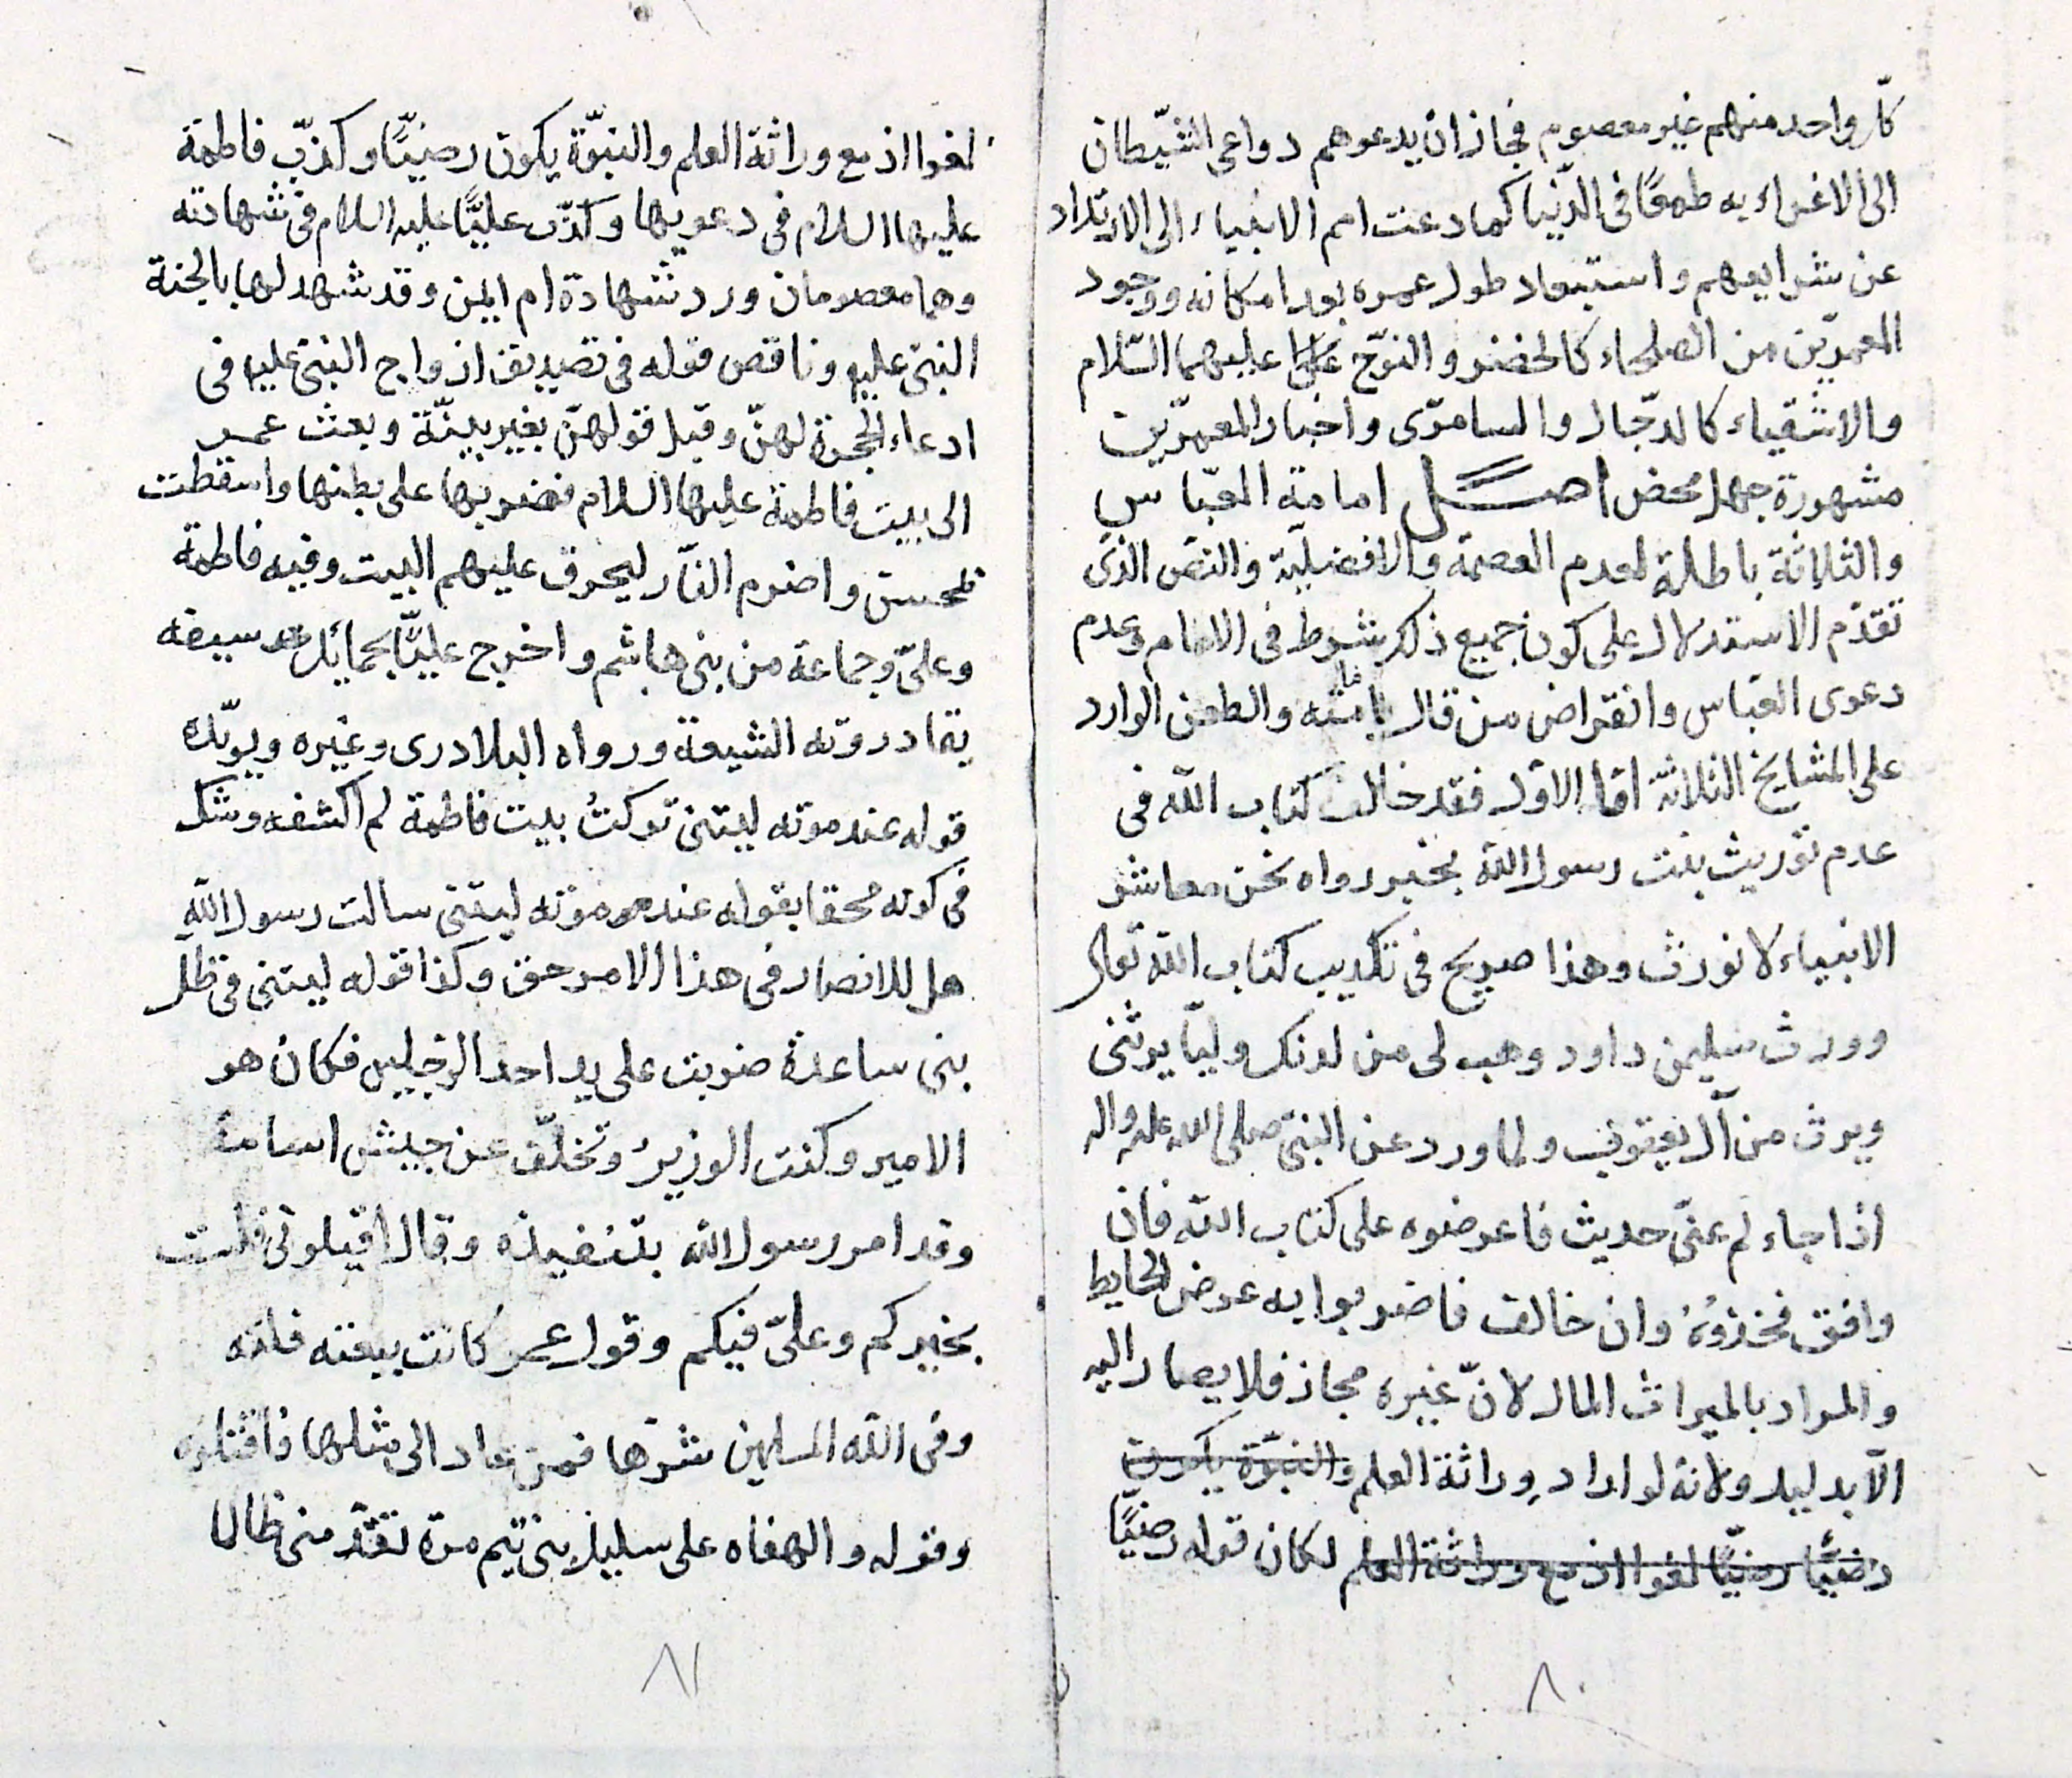 كلّ واحد منهم غير معصوم فجاز ان يدعوهم دواعى الشيطان
الى الاغراء به طمعًا فى الدّنيا كما دعت امم الانبياء الى الارتداد
عن شرايعهم واستبعاد طول عمره بعد امكانه ووجود
المعمرّين من الصلحاء كالخضر والنوّح على عليهما السّلام
والاشقياء كالدجّال والسامرّى واخبار المعمرّين
مشهورة جهل محض اصل امامة العبّاس
والثلاثة باطلة لعدم العصمة والافضليّة والنصّ الذى
تقدّم الاستدلال على كون جميع ذلك شرط فى الامام وعدم
دعوى العبّاس وانقراض من قال بامامته والطعن الوارد
على المشايخ الثلاثة امّا الاوّل فقد خالف كتاب الله فى
عدم توريث بنت رسول الله بخبر رواه نحن معاشر
الانبياء لا نورث وهذا صريح فى تكذيب كتاب الله تعالى
وورث سليمن داود وهب لى من لدنك وليّا يرثنى
ويرث من آل يعقوب ولما ورد عن النبىّ صلى الله عليه واله
اذا جاءكم عنّى حديث فاعرضوه على كتاب الله فان
وافق فخذوُهُ وان خالف فاضربوا به عرض الحايط
والمراد بالميراث المال لانّ غيره مجاز فلا يصار اليه
الّا بدليل ولانه لو اراد وراثة العلم والنبوّة يكون
رضيًّا رضيًّا لغوا اذ مع وراثة العلم لكان قوله رضيًّا
٨٠
لغوا اذ مع وراثة العلم والنبوّة يكون رضيًّا وكذّب فاطمة
عليها السلام فى دعويها وكذّب عليًّا عليه السلام فى شهادته
وهما معصومان ورد شهادة ام ايمن وقد شهد لها بالجنة
النبىّ عليه وناقض قوله فى تصديق ازواج النبىّ عليه فى
ادعاء الحجرة لهنّ وقبل قولهنّ بغير بيّنة وبعث عمر
الى بيت فاطمة عليها السلام فضربها على بطنها واسقطت
بمحسن واضرم النّار ليحرق عليهم البيت وفيه فاطمة
وعلىّ وجماعة من بنى هاشم واخرج عليًّا بحمايل سيفه
يقاد روته الشيعة ورواه البلادرى وغيره ويؤيّده
قوله عند موته ليتنى تركتُ بيت فاطمة لم اكشفه وشك
فى كونه محقا بقوله عند موته ليتنى سالت رسول الله
هل للانصار فى هذا الامر حق وكذا قوله ليتنى فى ظلّ
بنى ساعدة ضربت على يد احد الرجلين فكان هو
الامير وكنت الوزير وتخلّف عن جيش اسامة
وقد امر رسول الله بتنفيذه وقال اقيلونى فلست
بخيركم وعلىّ فيكم وقول عمر كانت بيعته فلته
وقى الله المسلمين شرّها فمن عاد الى مثلها فاقتلوه
وقوله والهفاه على سليل بنى تيم مرة تقدّ منى ظالما
٨١